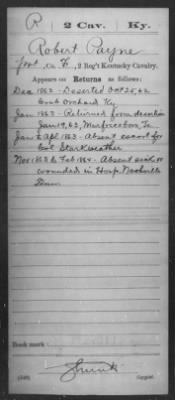 P 2 Cav. Ky.
Robert Payne
Co. 2 Reg't Kentucky Cavalry.
Appears on
Returns as follows:
Dec 1862 - Deserted Oct 25, 62
Orchard Ky
Jan 1863 - Returned from desertion
Jan 19, 63, Murfreesboro, Te
Jan & Apl 1863 - Absent escort for
Col Starkweather
Nov 1863 to Feb 1864 - Absent sick or
wounded in Hosp. Nashville
Tenn
Book mark:
(546)
Copyist.